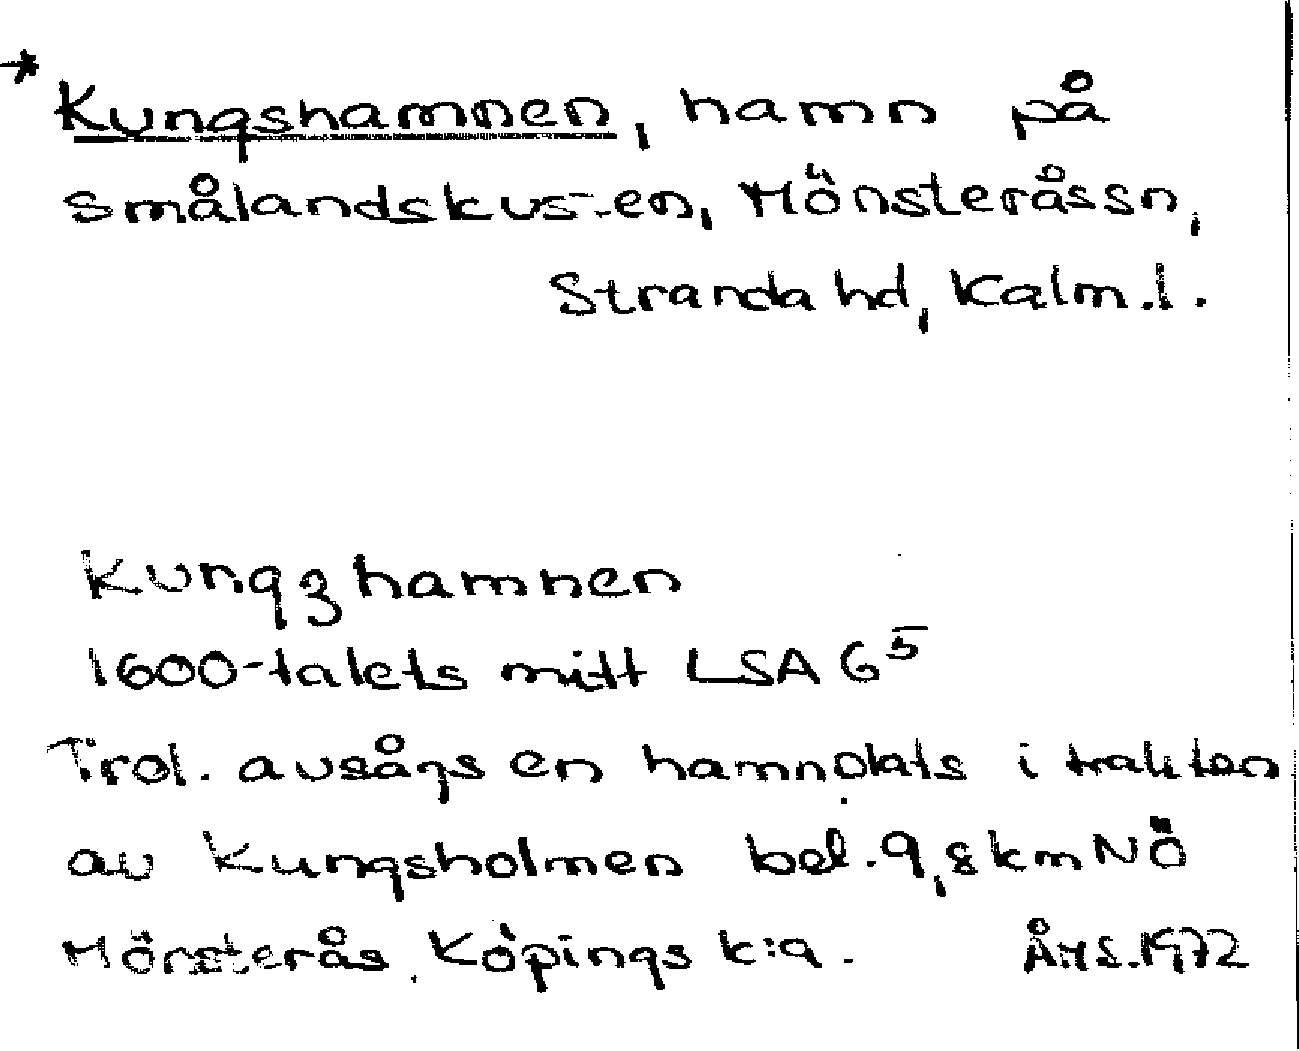 * Kungshamnen, hamn på
smålandskusten, Mönsterås sn,
Stranda hd, Kalm.l.
Kungzhamnen
1600-talets mitt LSA G5
Trol. avsågs en hamnplats i trakten
av Kungsholmen bel. 9,8 km NÖ
Mönsterås Köpings k:a. ÅHS.1972